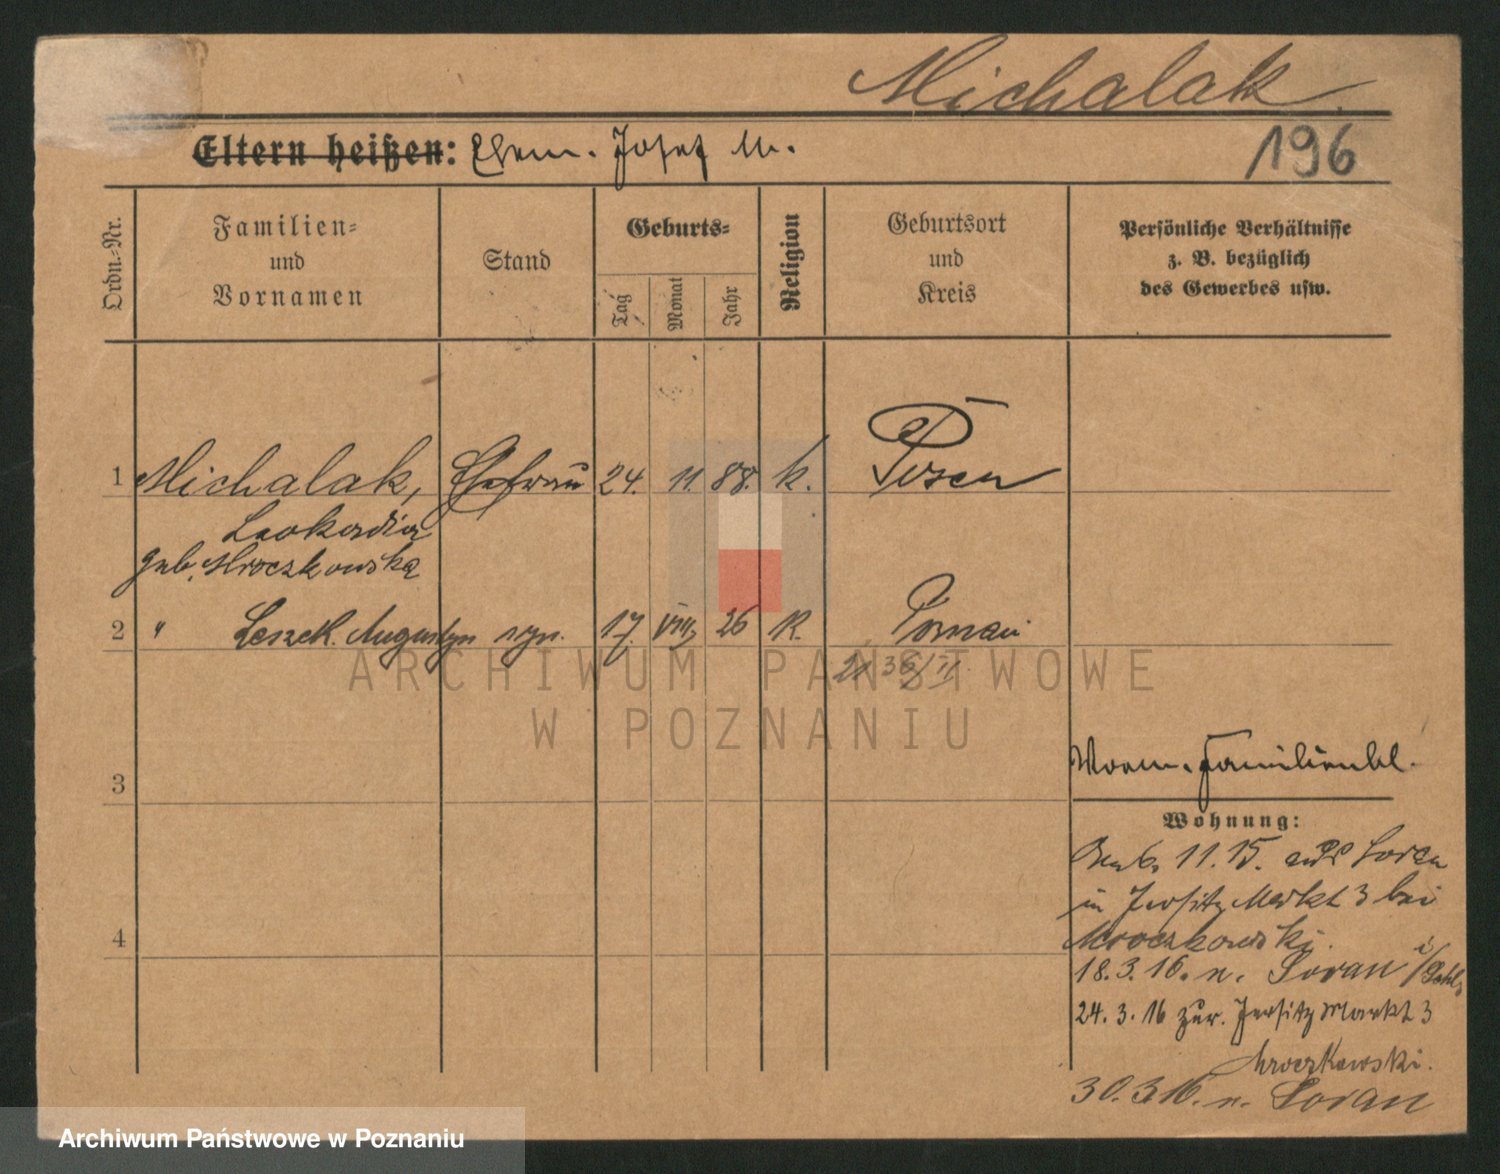 Michalak.
196
Eltern heißen: Ehem. Josef M.
Ordn.-Nr.
Familien-
und
Vornamen
Stand
Geburts-
Tag
Monat
Jahr
Religion
Geburtsort
und
Kreis
Persönliche Verhältnisse
z. B. bezüglich
des Gewerbes usw.
1 Michalak, Ehefrau 24. 11. 88. k. Posen
Leokadia
geb. Mroczkowska
2 " Leszek Augustyn syn. 17. VIII 26 R. Poznań
3
4
ARCHIWUM PAŃSTWOWE
W POZNANIU
Familienbl.
Wohnung:
11. 15. aus Soran
in Jersitz Markt 3 bei
Mroczkowski.
18. 3. 16. n. Soran
24. 3. 16 zur. Jersitz Markt 3
Mroczkowski.
30. 3. 16. n. Soran
Archiwum Państwowe w Poznaniu